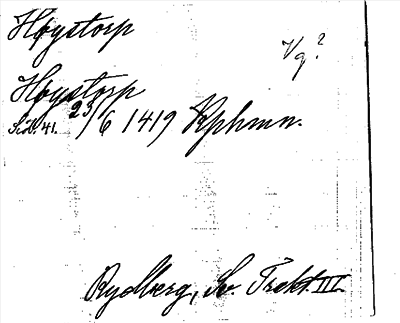 Høystorp
Vg.?
Høystorp
S. 41. 23/6 1419 Kphmn.
Rydberg, Sv. Trakt. III.